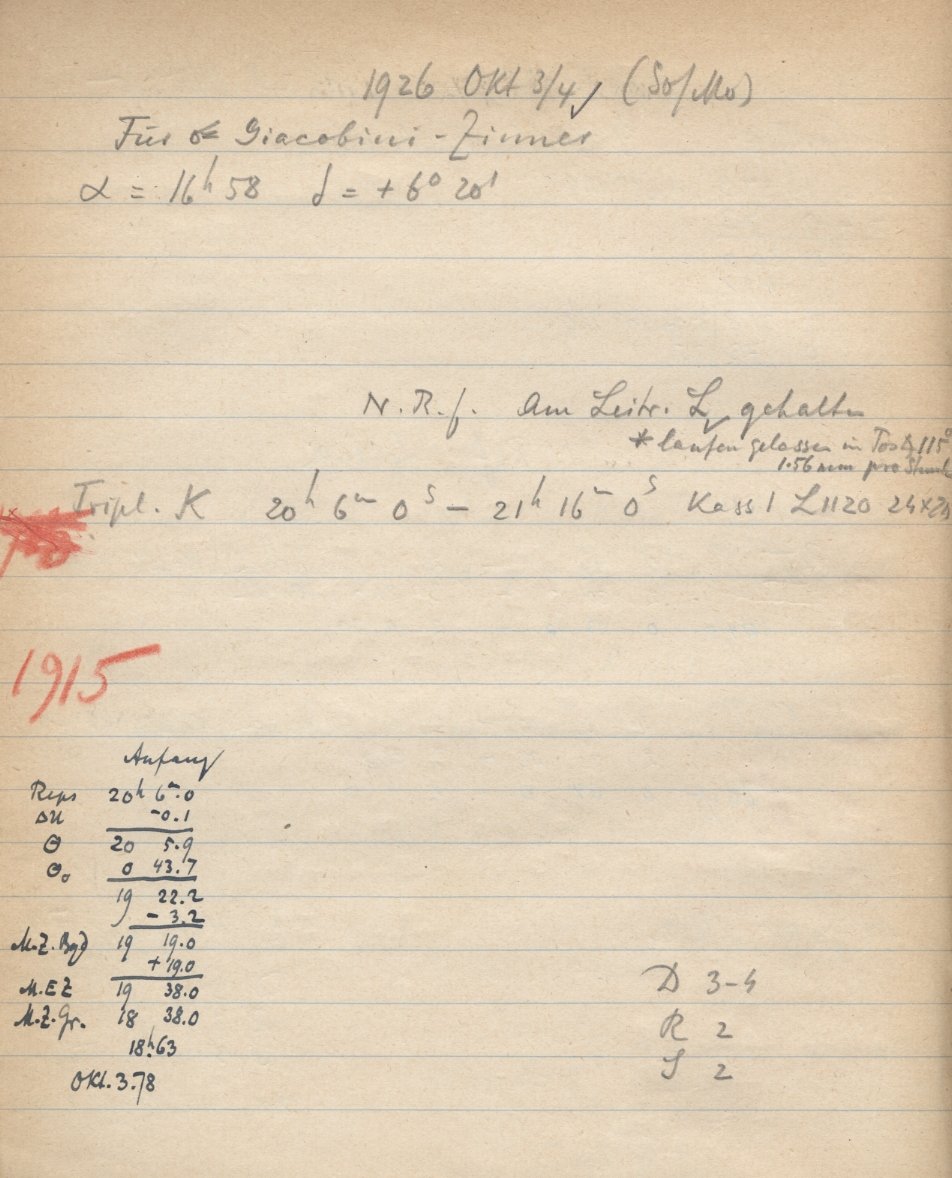 1926 Okt 3/4 (So/Mo)
Für Giacobini-Zinner
α = 16h 58 δ = + 6° 20'
N. R. f. Am Leitr. L gehalten
* laufen gelassen in Pos 115°
1.56 mm pro Stunde
Tripl. K 20h 6m 0s – 21h 16m 0s Kass 1 L 1120 24x
1915
Anfang
Reps 20h 6m.0
ΔU -0.1
Θ 20 5.9
Θ₀ 0 43.7
19 22.2
- 3.2
M.Z. Bgd 19 19.0
+ 19.0
M.E.Z 19 38.0
M.Z. Gr. 18 38.0
18h.63
Okt. 3.78
D 3-4
R 2
S 2